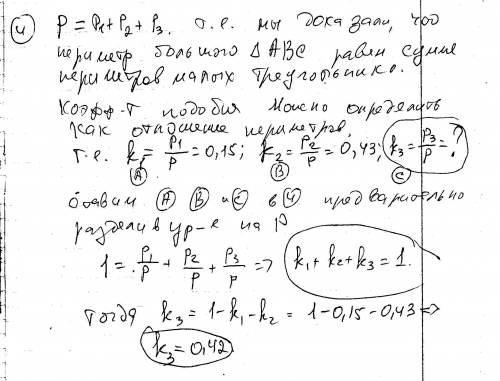 ④ P = P₁ + P₂ + P₃. т.е. мы доказали, что
периметр большого Δ ABC равен сумме
периметров малых треугольников.
Коэфф-т подобия можно определить
как отношение периметров,
т.е. k₁ = P₁/P = 0,15; k₂ = P₂/P = 0,43; k₃ = P₃/P = ?
A B C
A B и C в ④ предварительно
разделив ур-е на P
1 = P₁/P + P₂/P + P₃/P => k₁ + k₂ + k₃ = 1.
тогда k₃ = 1 - k₁ - k₂ = 1 - 0,15 - 0,43 =>
k₃ = 0,42